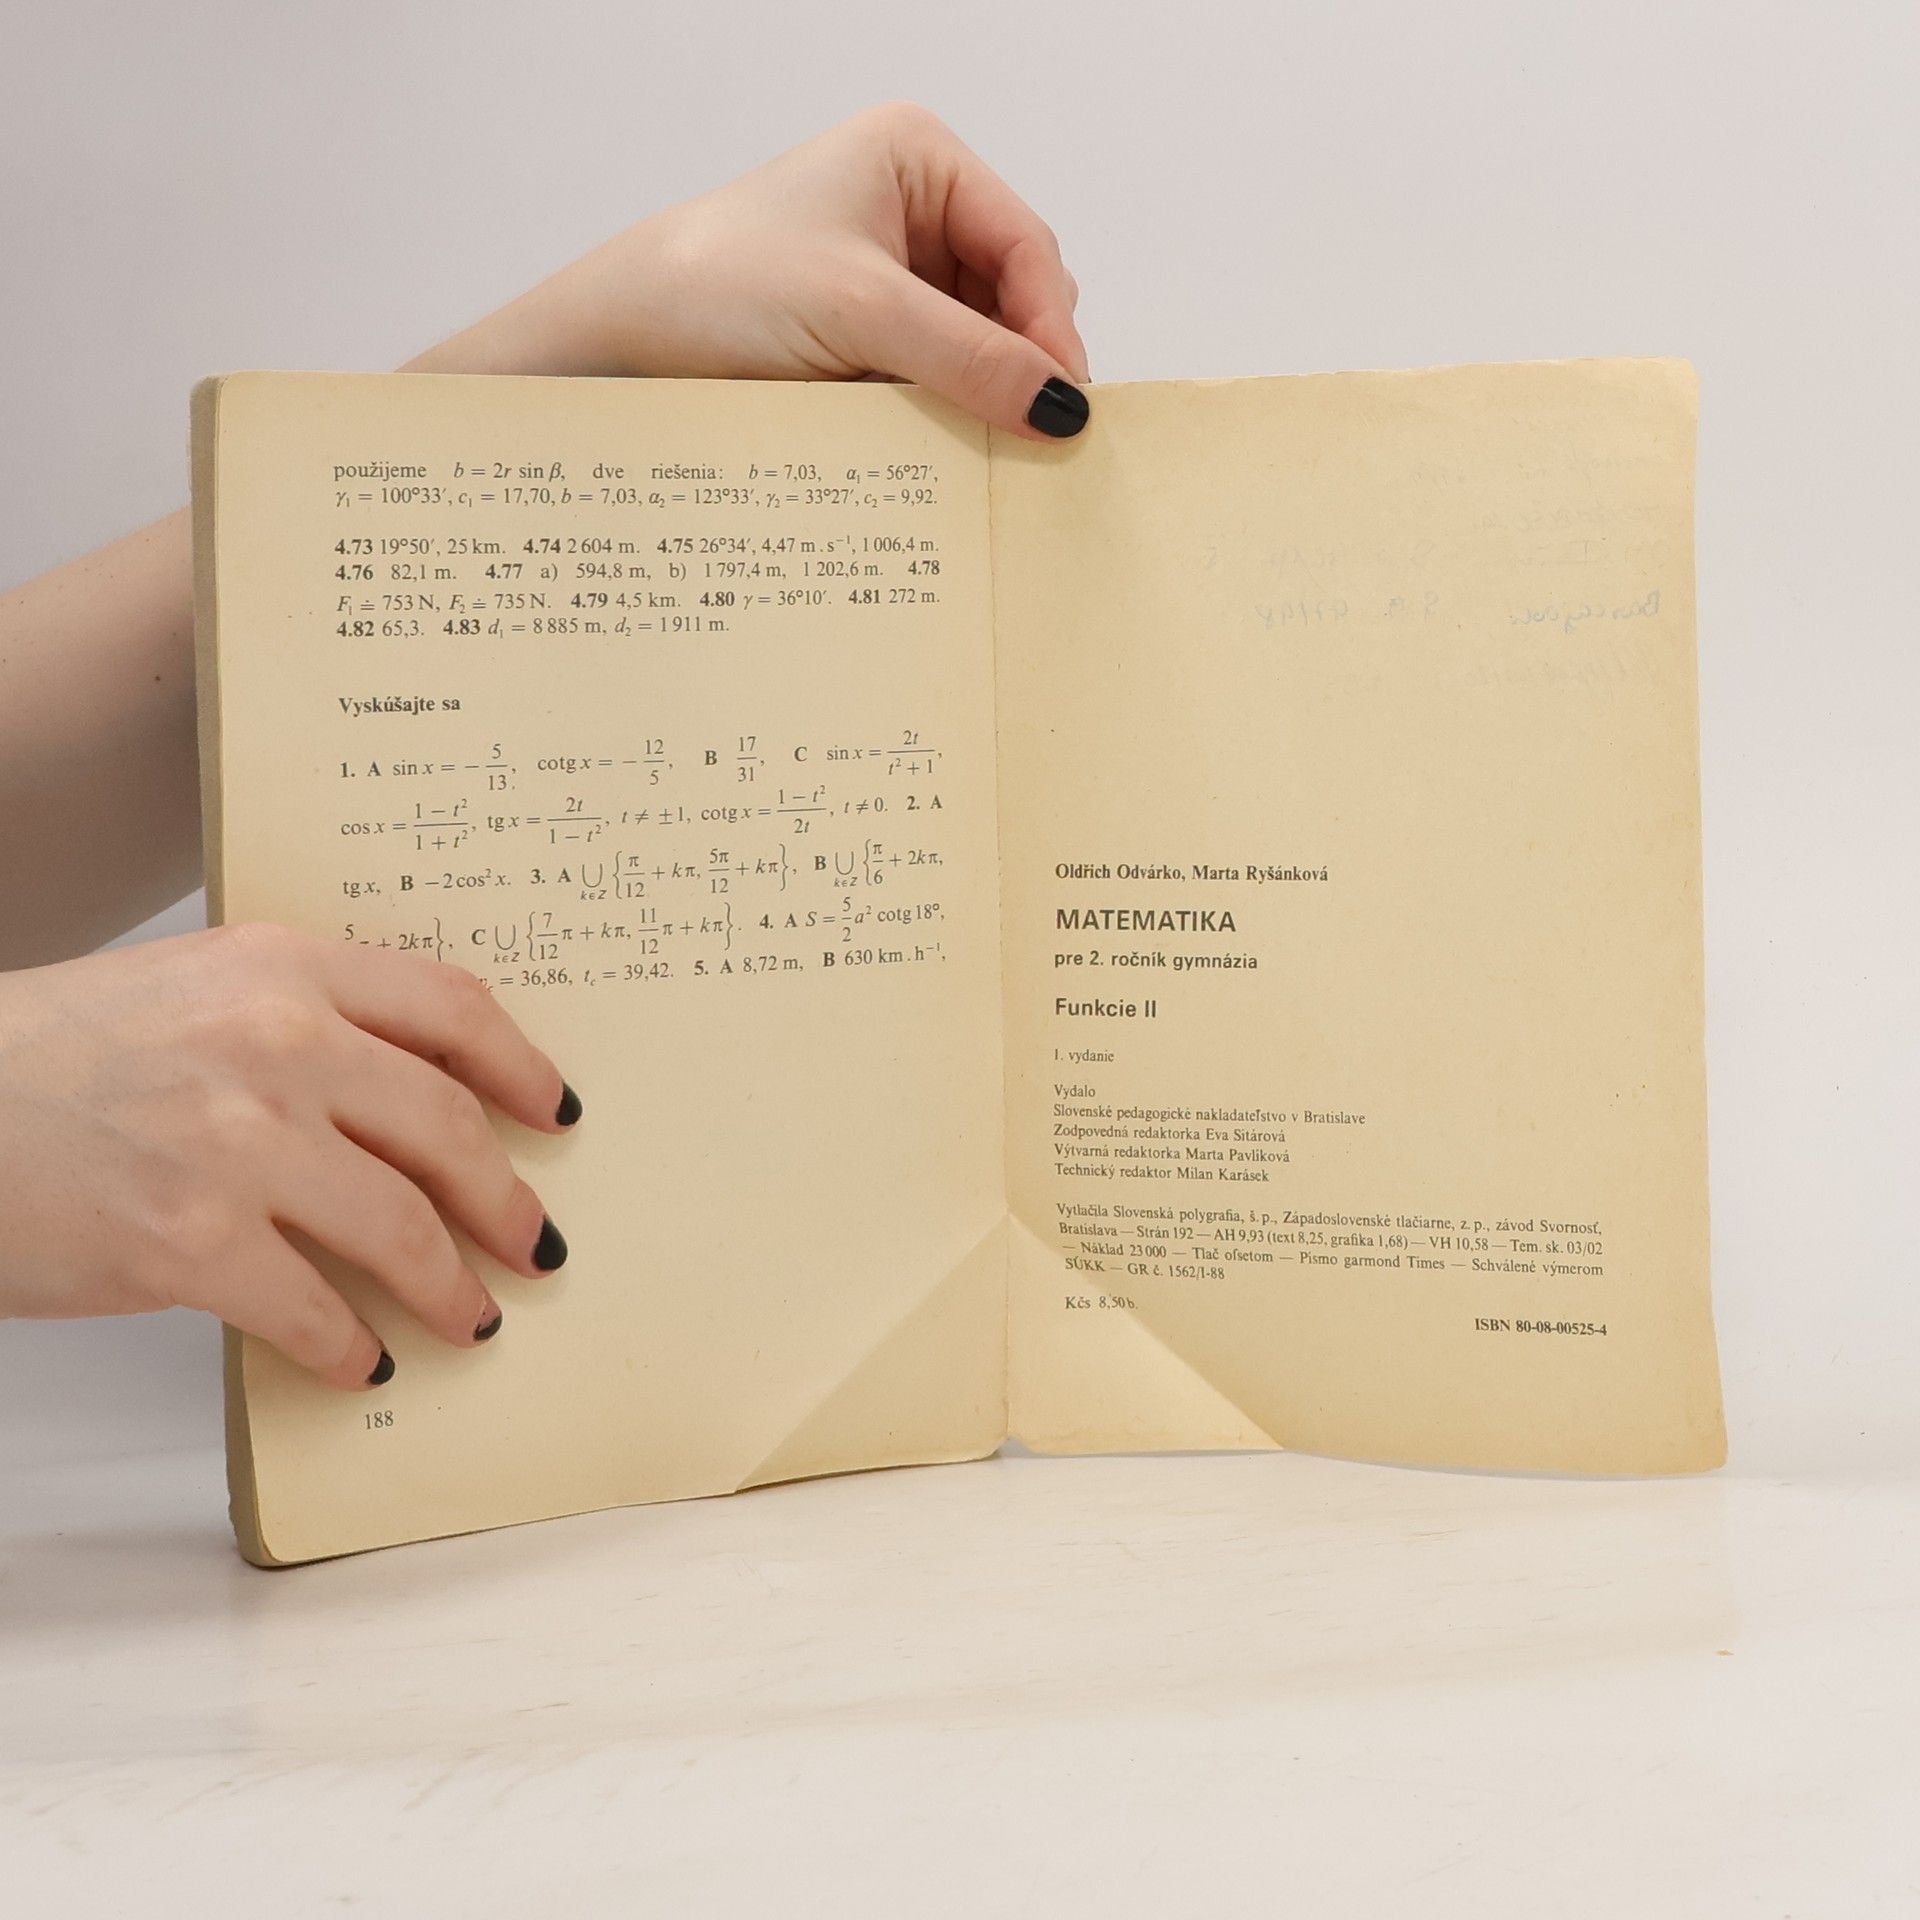 použijeme b = 2r sin β, dve riešenia: b = 7,03, α₁ = 56°27′,
γ₁ = 100°33′, c₁ = 17,70, b = 7,03, α₂ = 123°33′, γ₂ = 33°27′, c₂ = 9,92.
4.73 19°50′, 25 km. 4.74 2 604 m. 4.75 26°34′, 4,47 m . s⁻¹, 1 006,4 m.
4.76 82,1 m. 4.77 a) 594,8 m, b) 1 797,4 m, 1 202,6 m. 4.78
F₁ ≐ 753 N, F₂ ≐ 735 N. 4.79 4,5 km. 4.80 γ = 36°10′. 4.81 272 m.
4.82 65,3. 4.83 d₁ = 8 885 m, d₂ = 1 911 m.
Vyskúšajte sa
1. A sin x = − 5/13, cotg x = − 12/5, B 17/31, C sin x = 2t/(t² + 1),
cos x = (1 − t²)/(1 + t²), tg x = 2t/(1 − t²), t ≠ ±1, cotg x = (1 − t²)/2t, t ≠ 0. 2. A
tg x, B −2 cos² x. 3. A ⋃_{k∈Z} {π/12 + kπ, 5π/12 + kπ}, B ⋃_{k∈Z} {π/6 + 2kπ,
5 + 2kπ}, C ⋃_{k∈Z} {7/12 π + kπ, 11/12 π + kπ}. 4. A S = 5/2 a² cotg 18°,
= 36,86, t_c = 39,42. 5. A 8,72 m, B 630 km . h⁻¹,
188
Oldřich Odvárko, Marta Ryšánková
MATEMATIKA
pre 2. ročník gymnázia
Funkcie II
1. vydanie
Vydalo
Slovenské pedagogické nakladateľstvo v Bratislave
Zodpovedná redaktorka Eva Sitárová
Výtvarná redaktorka Marta Pavlíková
Technický redaktor Milan Karásek
Vytlačila Slovenská polygrafia, š. p., Západoslovenské tlačiarne, z. p., závod Svornosť,
Bratislava — Strán 192 — AH 9,93 (text 8,25, grafika 1,68) — VH 10,58 — Tem. sk. 03/02
— Náklad 23 000 — Tlač ofsetom — Písmo garmond Times — Schválené výmerom
SÚKK — GR č. 1562/I-88
Kčs 8,50 b.
ISBN 80-08-00525-4